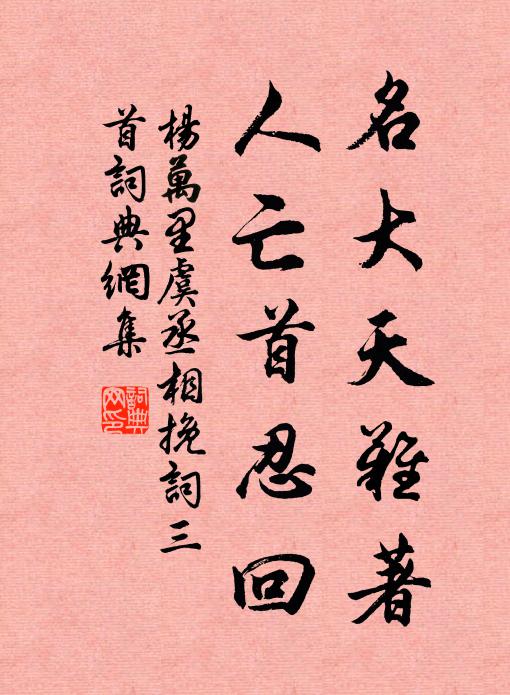 名大天難著
人亡首忍回
楊萬里虞丞相挽詞三
首詞典網集
詞典
网印